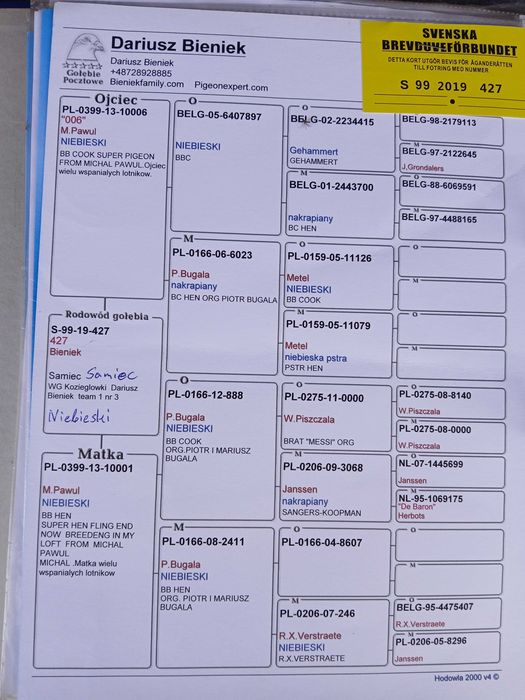 Dariusz Bieniek
Dariusz Bieniek
+48728928885
Bieniekfamily.com Pigeonexpert.com
Gołębie
Pocztowe
SVENSKA
BREVDUVEFÖRBUNDET
DETTA KORT UTGÖR BEVIS FÖR ÄGANDERÄTTEN
TILL FOTRING MED NUMMER
S 99 2019 427
Ojciec
PL-0399-13-10006
"006"
M.Pawul
NIEBIESKI
BB COOK SUPER PIGEON
FROM MICHAL PAWUL.Ojciec
wielu wspaniałych lotnikow.
Rodowód gołębia
S-99-19-427
427
Bieniek
Samiec Samiec
WG Kozieglowki Dariusz
Bieniek team 1 nr 3
Niebieski
Matka
PL-0399-13-10001
M.Pawul
NIEBIESKI
BB HEN
SUPER HEN FLING END
NOW BREEDENG IN MY
LOFT FROM MICHAL
PAWUL
MICHAL .Matka wielu
wspaniałych lotnikow
O
BELG-05-6407897
NIEBIESKI
BBC
M
PL-0166-06-6023
P.Bugala
nakrapiany
BC HEN ORG PIOTR BUGALA
O
PL-0166-12-888
P.Bugala
NIEBIESKI
BB COOK
ORG.PIOTR I MARIUSZ
BUGALA
M
PL-0166-08-2411
P.Bugala
NIEBIESKI
BB HEN
ORG. PIOTR I MARIUSZ
BUGALA
O
BELG-02-2234415
Gehammert
GEHAMMERT
M
BELG-01-2443700
nakrapiany
BC HEN
O
PL-0159-05-11126
Metel
NIEBIESKI
BB COOK
M
PL-0159-05-11079
Metel
niebieska pstra
PSTR HEN
O
PL-0275-11-0000
W.Piszczala
BRAT "MESSI" ORG
M
PL-0206-09-3068
Janssen
nakrapiany
SANGERS-KOOPMAN
O
PL-0166-04-8607
M
PL-0206-07-246
R.X.Verstraete
NIEBIESKI
R.X.VERSTRAETE
BELG-98-2179113
M
BELG-97-2122645
J,Grondalers
O
BELG-88-6069591
M
BELG-97-4488165
O
M
O
M
O
PL-0275-08-8140
W.Piszczala
M
PL-0275-08-0000
W.Piszczala
O
NL-07-1445699
Janssen
M
NL-95-1069175
"De Baron"
Herbots
O
M
O
BELG-95-4475407
R.X.Verstraete
M
PL-0206-05-8296
Janssen
Hodowla 2000 v4 ©